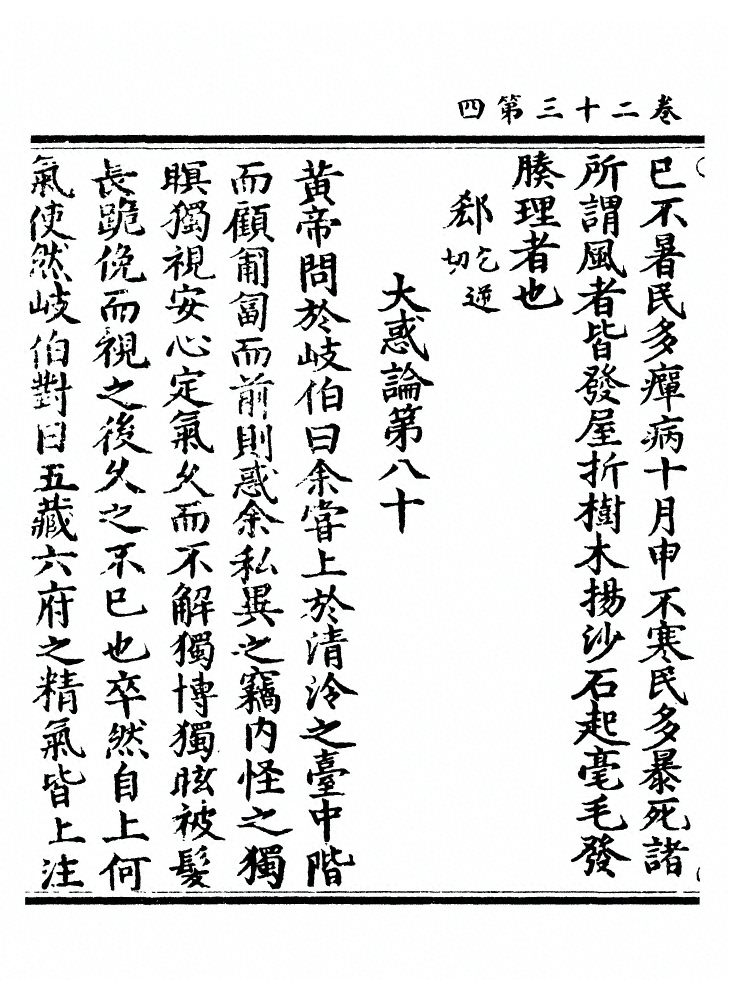 卷二十三第四
已不暑民多癉病十月申不寒民多暴死諸
所謂風者皆發屋折樹木揚沙石起毫毛發
腠理者也
郄
乞逆
切
大惑論第八十
黃帝問於岐伯曰余甞上於清泠之臺中階
而顧匍匐而前則惑余私異之竊内怪之獨
瞑獨視安心定氣久而不解獨博獨眩被髮
長跪俛而視之後久之不已也卒然自上何
氣使然岐伯對曰五藏六府之精氣皆上注